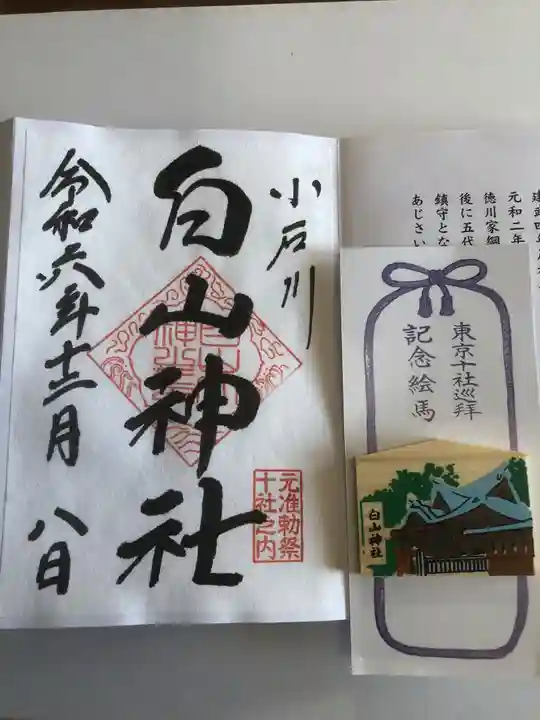 小石川
白山神社
令和六年十二月 八日
元准勅祭
十社之内
元和二年
徳川家綱
後に五代
鎮守とな
あじさい
東京十社巡拝
記念絵馬
白山神社